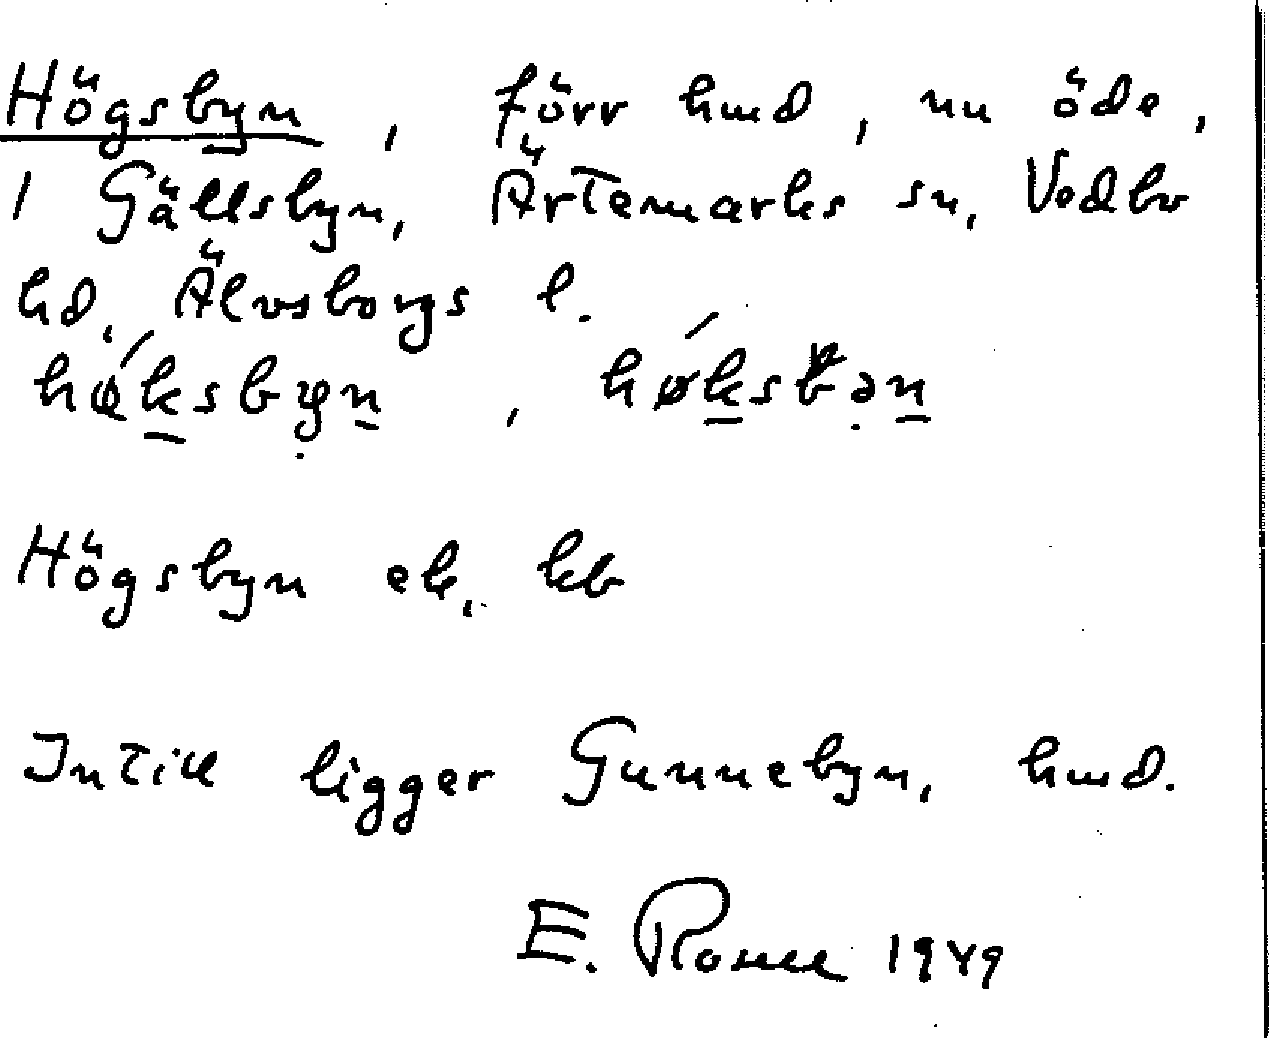 Högsbyn, förr hmd, nu öde,
i Gällsbyn, Ärtemarks sn, Vedbo
hd, Älvsborgs l.
Högsbyn ek. kb
Intill ligger Gunnebyn, hmd.
E. 1949